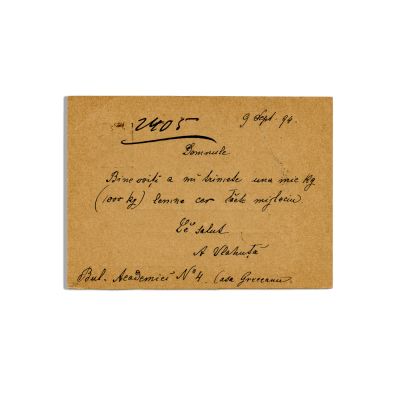 2405
9 Sept. 94.
Domnule
Bine voiți a mi trimete una mie kg
(1000 kg) lemne cer tăete mijlociu.
Vĕ salut
A Vlahuță
Bul. Academiei No 4. Casa Greceanu.